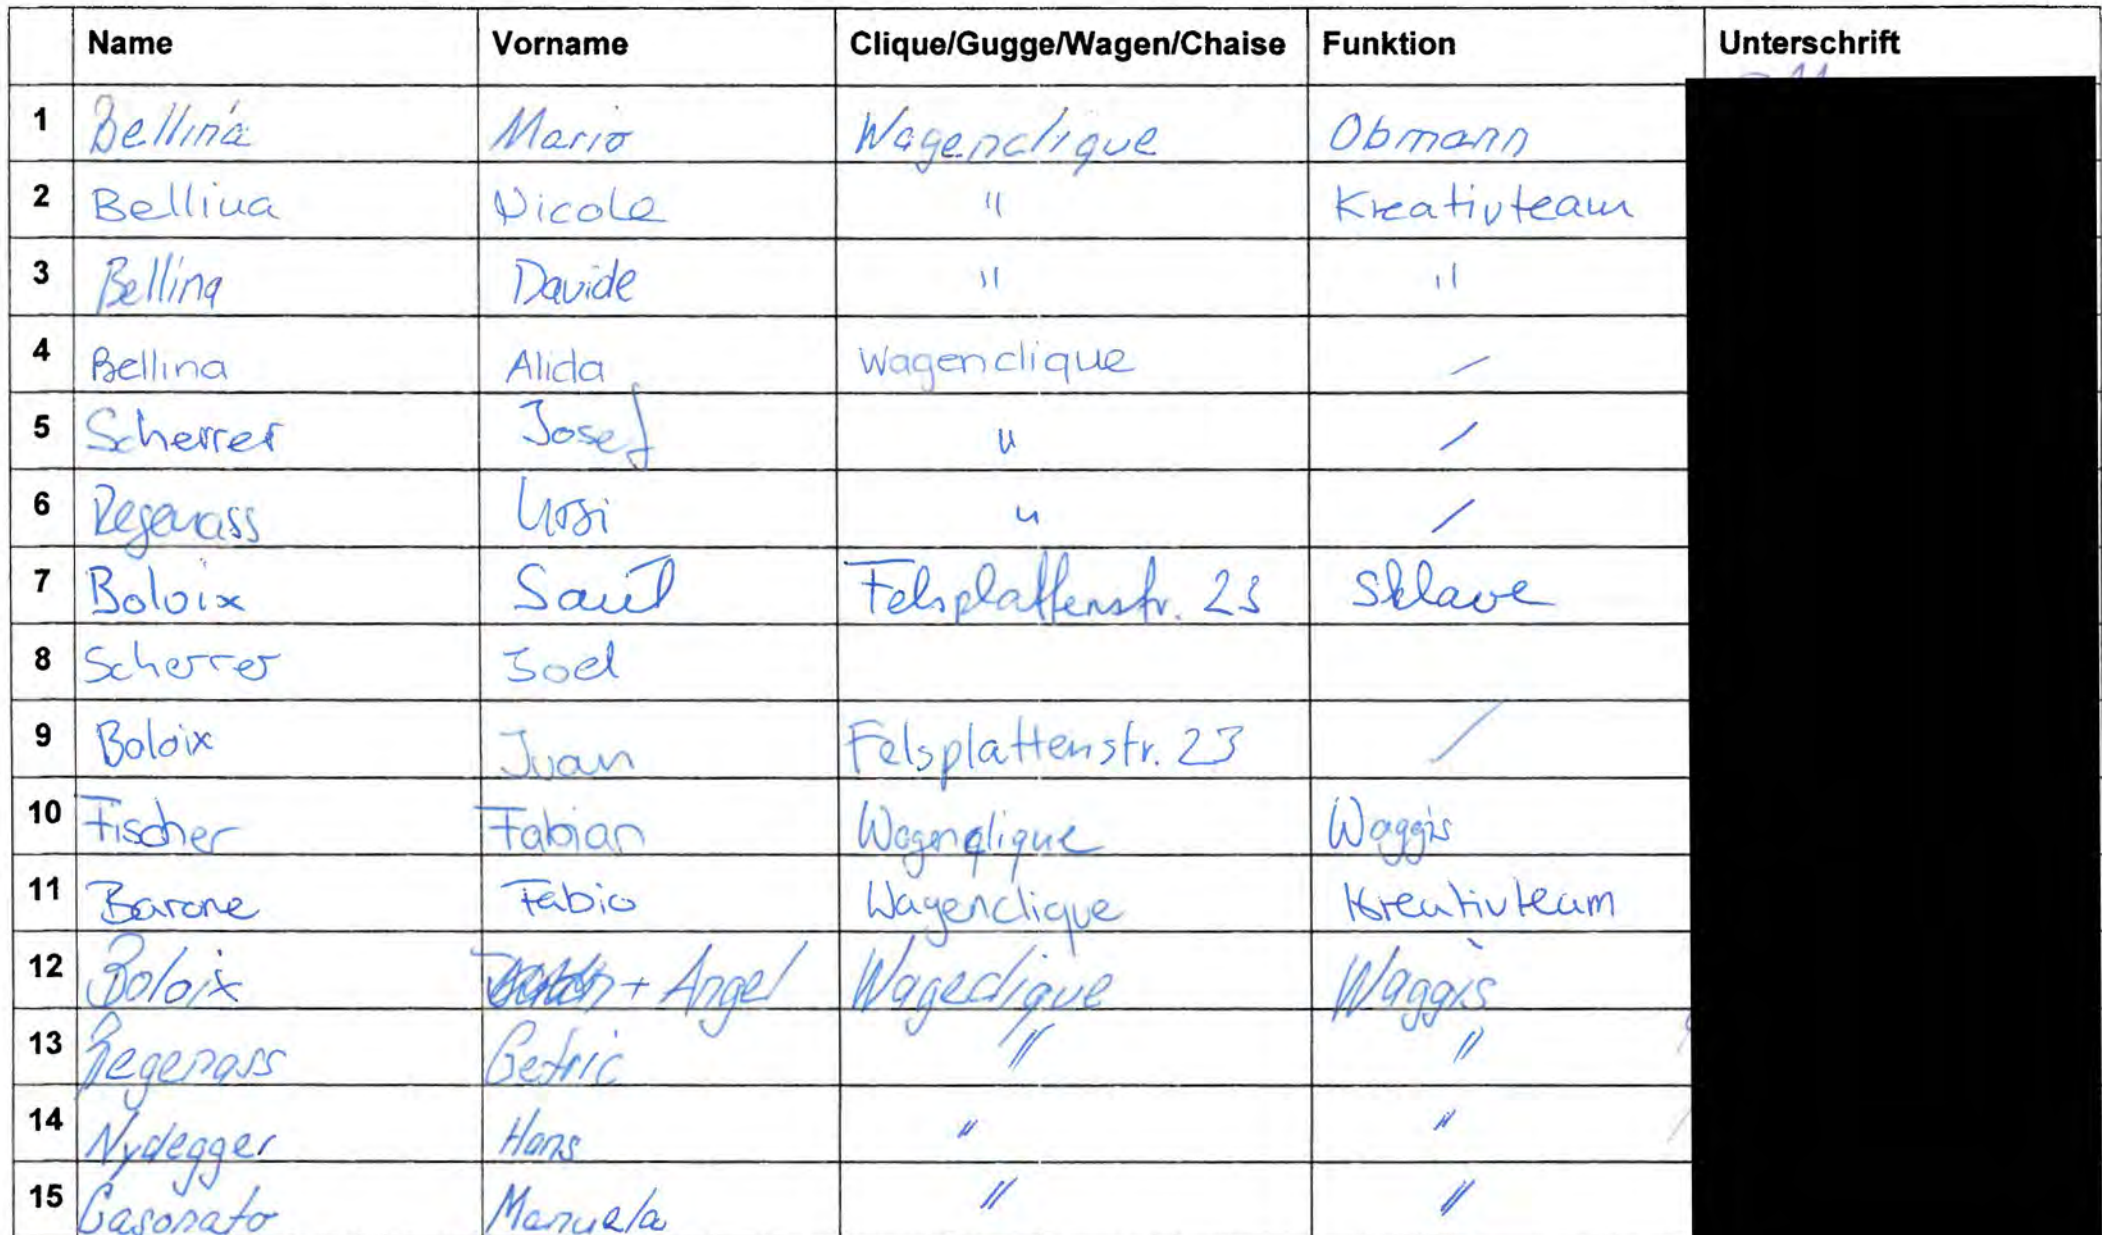 Name Vorname Clique/Gugge/Wagen/Chaise Funktion Unterschrift
1 Bellina Mario Wagenclique Obmann
2 Bellina Nicole " Kreativteam
3 Bellina Davide " "
4 Bellina Alida Wagenclique /
5 Scherrer Josef " /
6 Regenass Ursi " /
7 Boloix Saúl Felsplattenstr. 23 Sklave
8 Scherrer Joel
9 Boloix Juan Felsplattenstr. 23 /
10 Fischer Fabian Wagenclique Waggis
11 Barone Fabio Wagenclique Kreativteam
12 Boloix + Angel Wageclique Waggis
13 Regenass " "
14 Nydegger Hans " "
15 Casonato Manuela " "